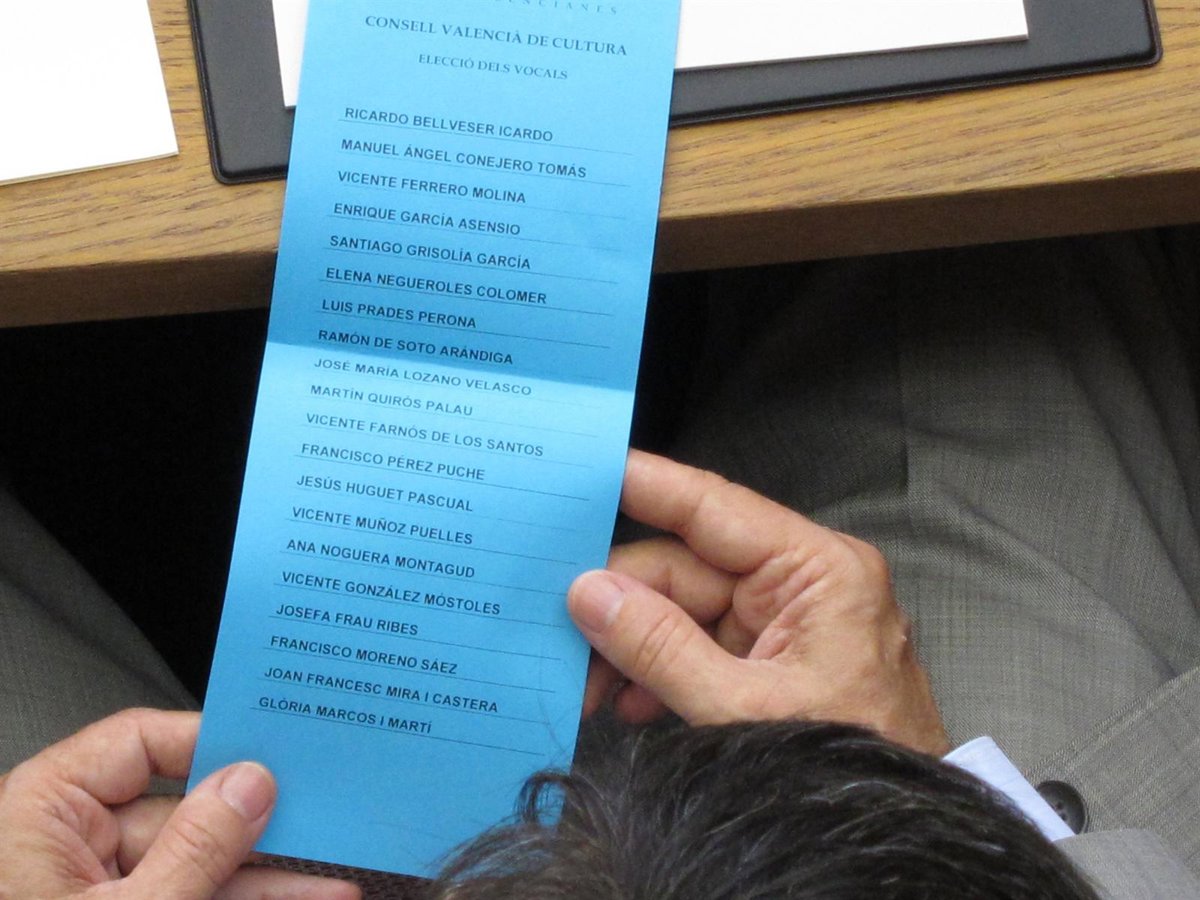 CONSELL VALENCIÀ DE CULTURA
ELECCIÓ DELS VOCALS
RICARDO BELLVESER ICARDO
MANUEL ÁNGEL CONEJERO TOMÁS
VICENTE FERRERO MOLINA
ENRIQUE GARCÍA ASENSIO
SANTIAGO GRISOLÍA GARCÍA
ELENA NEGUEROLES COLOMER
LUIS PRADES PERONA
RAMÓN DE SOTO ARÁNDIGA
JOSÉ MARÍA LOZANO VELASCO
MARTÍN QUIRÓS PALAU
VICENTE FARNÓS DE LOS SANTOS
FRANCISCO PÉREZ PUCHE
JESÚS HUGUET PASCUAL
VICENTE MUÑOZ PUELLES
ANA NOGUERA MONTAGUD
VICENTE GONZÁLEZ MÓSTOLES
JOSEFA FRAU RIBES
FRANCISCO MORENO SÁEZ
JOAN FRANCESC MIRA I CASTERA
GLÒRIA MARCOS I MARTÍ